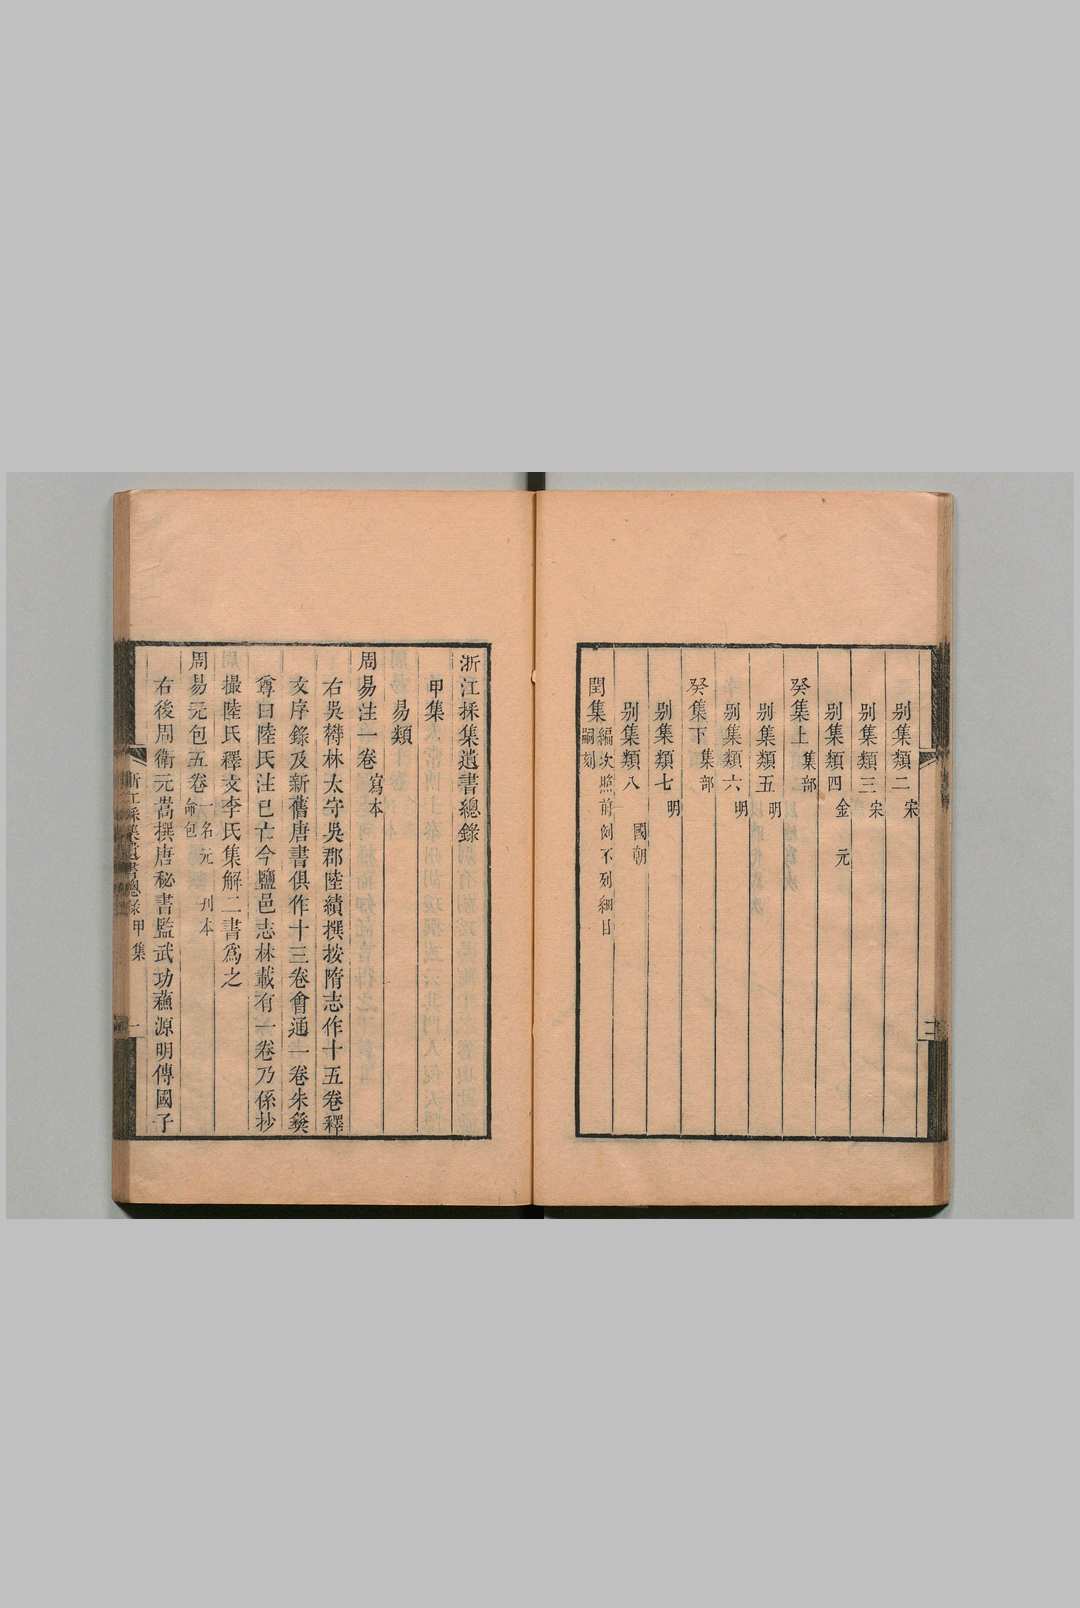 別集類二 宋
別集類三 宋
別集類四 金 元
癸集上 集部
別集類五 明
別集類六 明
癸集下 集部
別集類七 明
別集類八 國朝
閏集 編次照前例不列細目
嗣刻
二
浙江採集遺書總錄
甲集
易類
周易注一卷 寫本
右吳鬱林太守吳郡陸績撰按隋志作十五卷釋
文序錄及新舊唐書俱作十三卷會通一卷朱彝
尊曰陸氏注已亡今鹽邑志林載有一卷乃係抄
撮陸氏釋文李氏集解二書爲之
周易元包五卷 一名元命包 刊本
右後周衛元嵩撰唐秘書監武功蘇源明傳國子
浙江採集遺書總錄 甲集 一